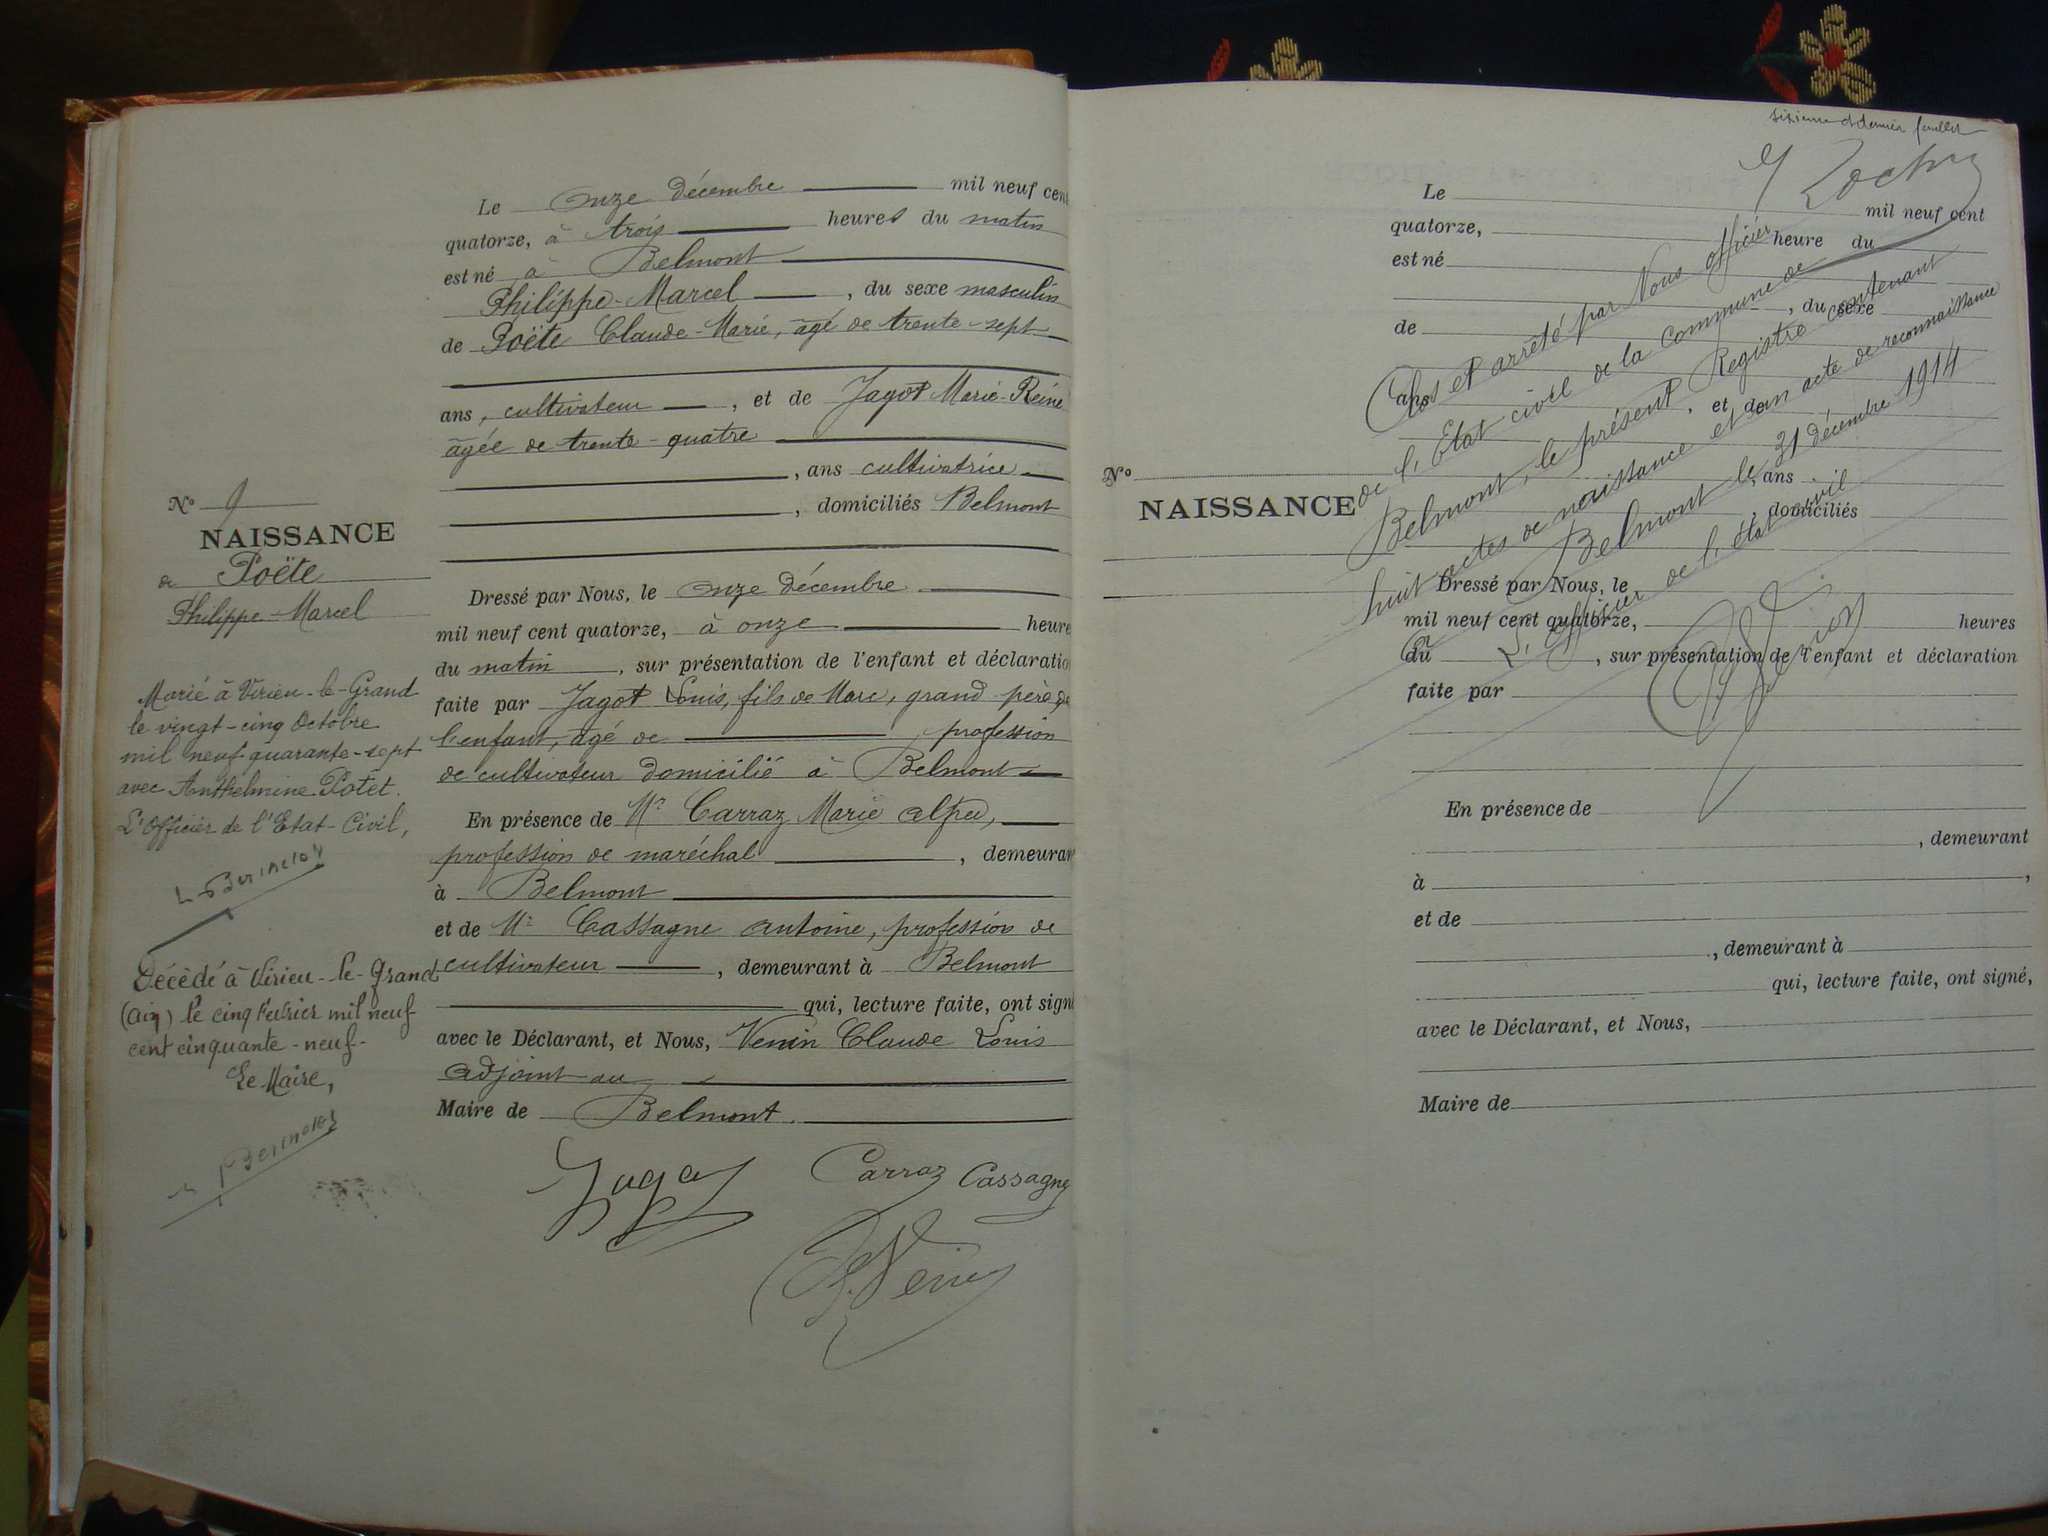 N° 9
NAISSANCE
de Poëte
Philippe-Marcel
Marié à Virieu-le-Grand
le vingt-cinq Octobre
mil neuf quarante-sept
avec Anthelmine Potet.
L'Officier de l'Etat-Civil,
Décédé à Virieu-le-Grand
(Ain) le cinq Février mil neuf
cent cinquante-neuf-
Le Maire,
Le onze décembre mil neuf cent
quatorze, à trois heures du matin
est né à Belmont
Philippe-Marcel, du sexe masculin
de Poëte Claude-Marie, âgé de trente-sept
ans, cultivateur, et de Jagot Marie-Reine
âgée de trente-quatre
, ans cultivatrice
, domiciliés Belmont
Dressé par Nous, le onze décembre
mil neuf cent quatorze, à onze heure
du matin, sur présentation de l'enfant et déclaratio
faite par Jagot Louis, fils de Marc, grand père de
l'enfant, âgé de profession
de cultivateur domicilié à Belmont
En présence de Mr Carraz Marie
profession de maréchal, demeuran
à Belmont
et de Mr Cassagne antoine, profession de
cultivateur, demeurant à Belmont
qui, lecture faite, ont signé
avec le Déclarant, et Nous, Venin Claude Louis
adjoint au
Maire de Belmont.
Jagot Carraz Cassagne
Venin
sixième et dernier feuillet
Le mil neuf cent
quatorze, heure du
est né
, du sexe
de
ans , et de
, ans
, domiciliés
N°
NAISSANCE
Clos et arrêté par Nous officier
de l'Etat civil de la commune de
Belmont, le présent Registre contenant
huit actes de naissance et un acte de reconnaissance
Belmont le 31 décembre 1914
L'officier de l'état civil
Dressé par Nous, le
mil neuf cent quatorze, heures
du , sur présentation de l'enfant et déclaration
faite par
En présence de
, demeurant
à ,
et de
, demeurant à
qui, lecture faite, ont signé,
avec le Déclarant, et Nous,
Maire de